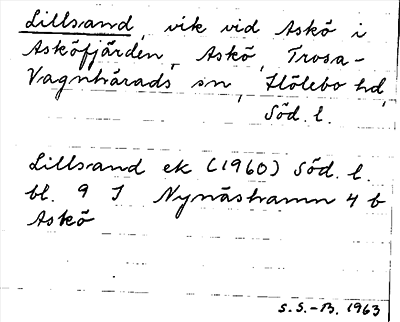 Lillsand, vik vid Askö i
Asköfjärden, Askö, Trosa-
Vagnhärads sn, Hölebo hd,
Söd. l.
Lillsand ek (1960) Söd. l.
bl. 9 I Nynäshamn 4 b
Askö
S.S.-B. 1963